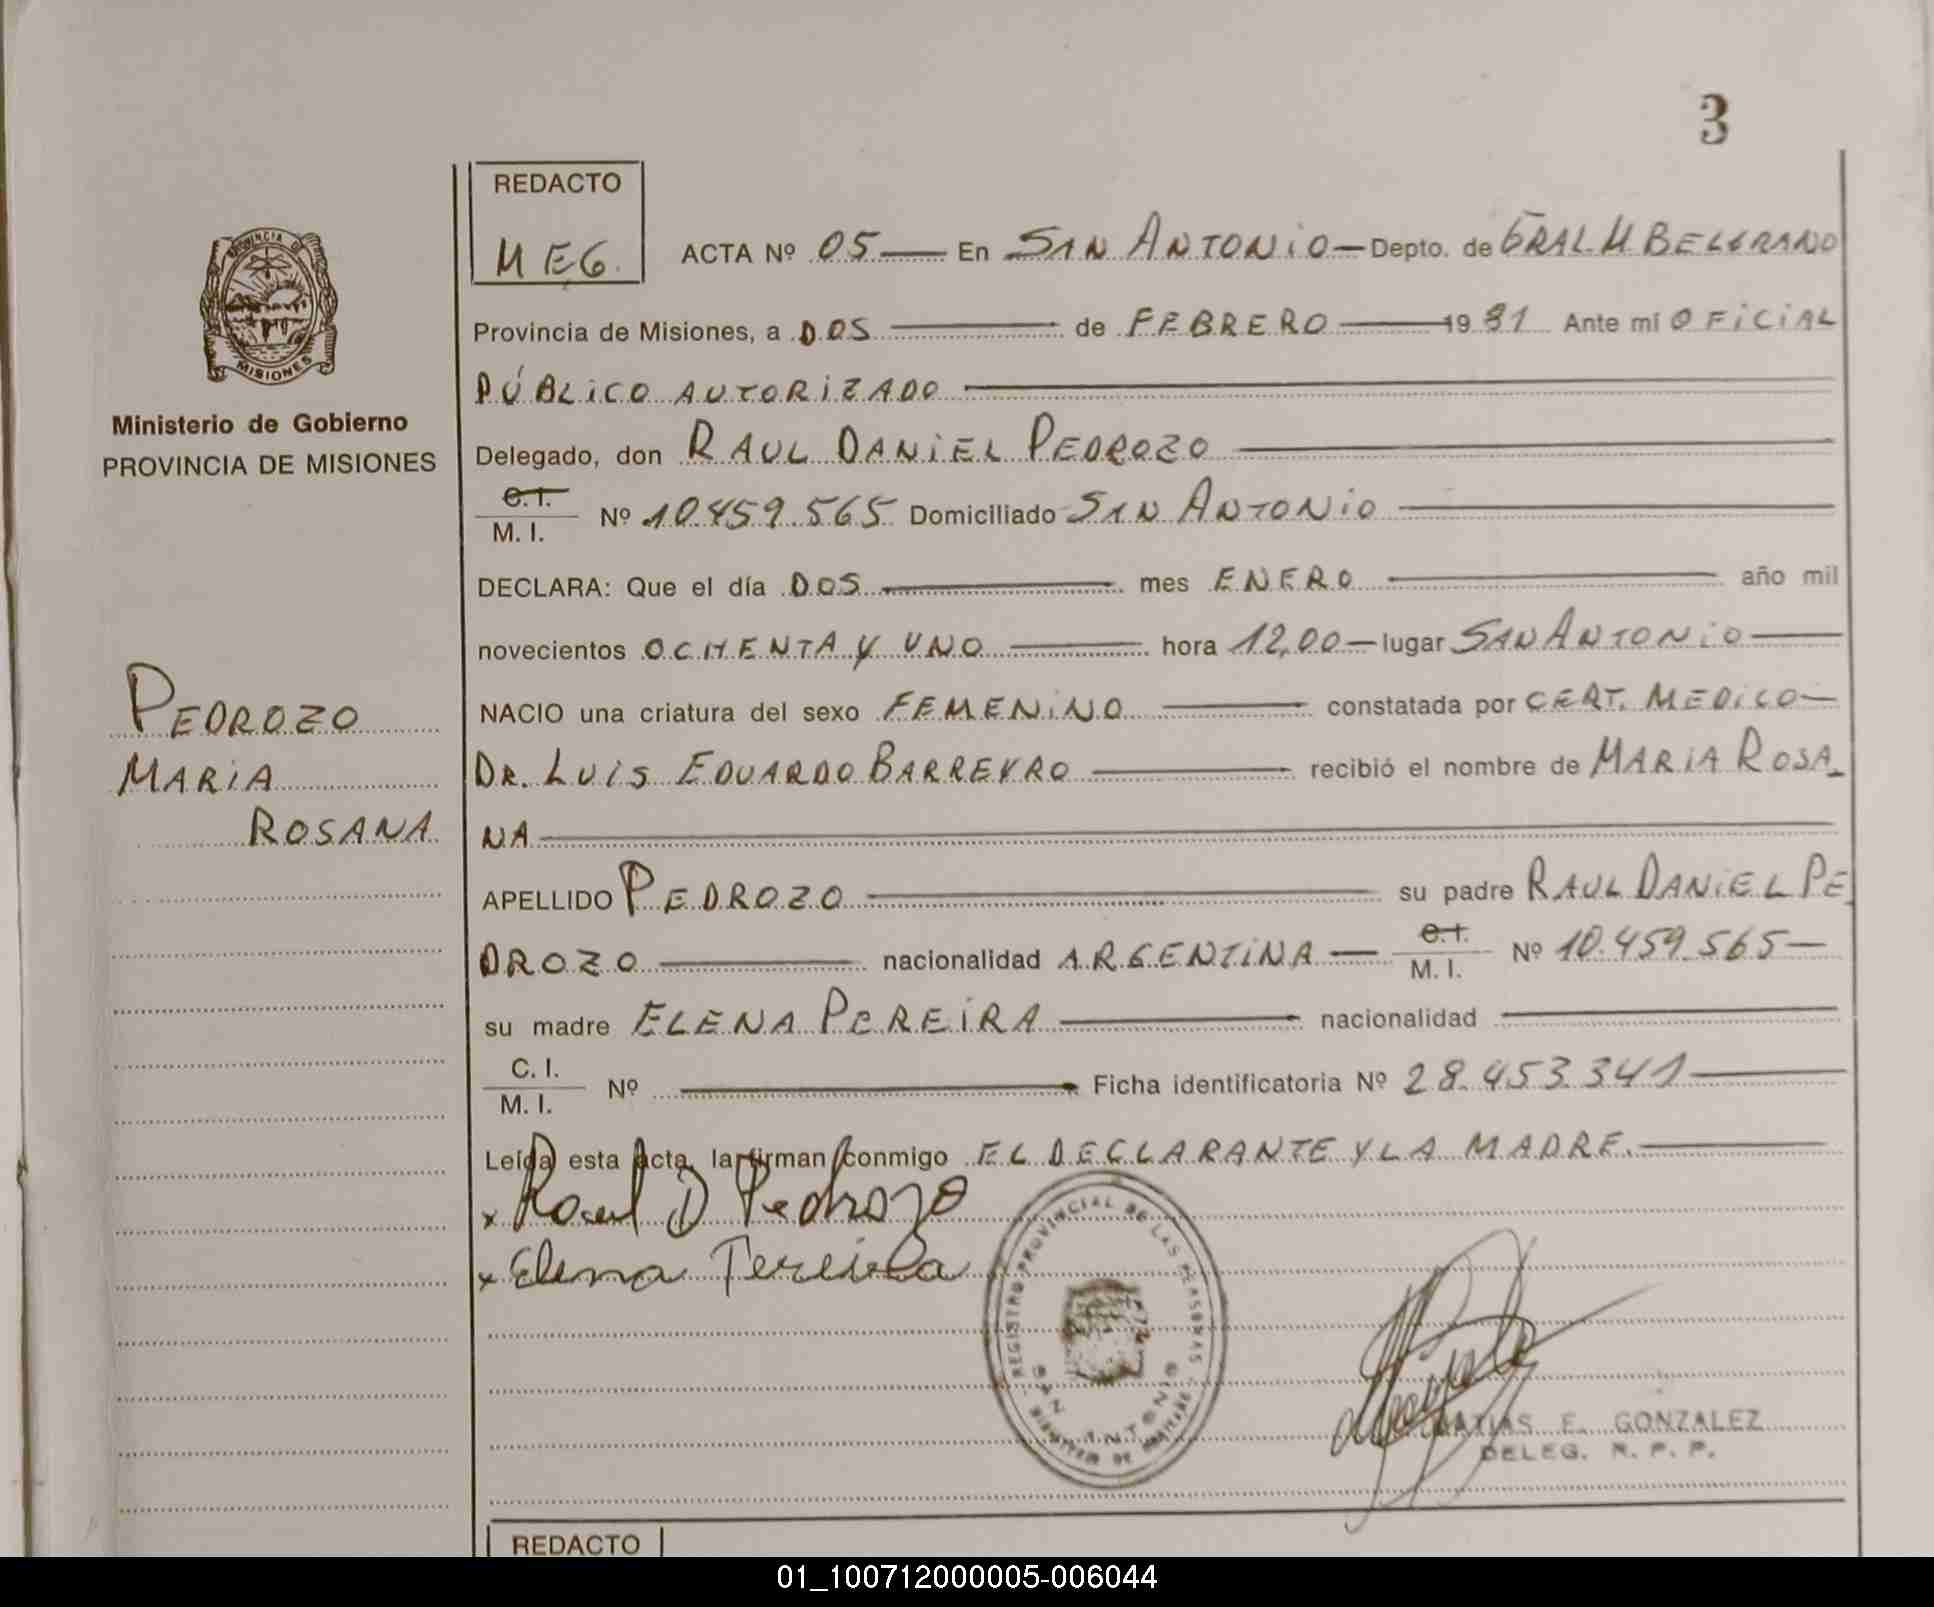 3
REDACTO
M E G.
ACTA Nº 05 En SAN ANTONIO Depto. de GRAL. M. BELGRANO
Provincia de Misiones, a DOS de FEBRERO 1981 Ante mí OFICIAL
PÚBLICO AUTORIZADO
Delegado, don RAUL DANIEL PEDROZO
C. I.
M. I. Nº 10.459.565 Domiciliado SAN ANTONIO
DECLARA: Que el día DOS mes ENERO año mil
novecientos OCHENTA Y UNO hora 12,00 lugar SAN ANTONIO
NACIO una criatura del sexo FEMENINO constatada por CERT. MEDICO
DR. LUIS EDUARDO BARREYRO recibió el nombre de MARIA ROSA_
NA
APELLIDO PEDROZO su padre RAUL DANIEL PE_
DROZO nacionalidad ARGENTINA C. I. M. I. Nº 10.459.565
su madre ELENA PEREIRA nacionalidad
C. I.
M. I. Nº Ficha identificatoria Nº 28.453.341
Leída esta acta, la firman conmigo EL DECLARANTE Y LA MADRE.
x Raul D Pedrozo
x Elena Pereira
REGISTRO PROVINCIAL DE LAS PERSONAS
SAN ANTONIO
MATIAS E. GONZALEZ
DELEG. R. P. P.
PROVINCIA DE
MISIONES
Ministerio de Gobierno
PROVINCIA DE MISIONES
PEDROZO
MARIA
ROSANA
REDACTO
01_100712000005-006044